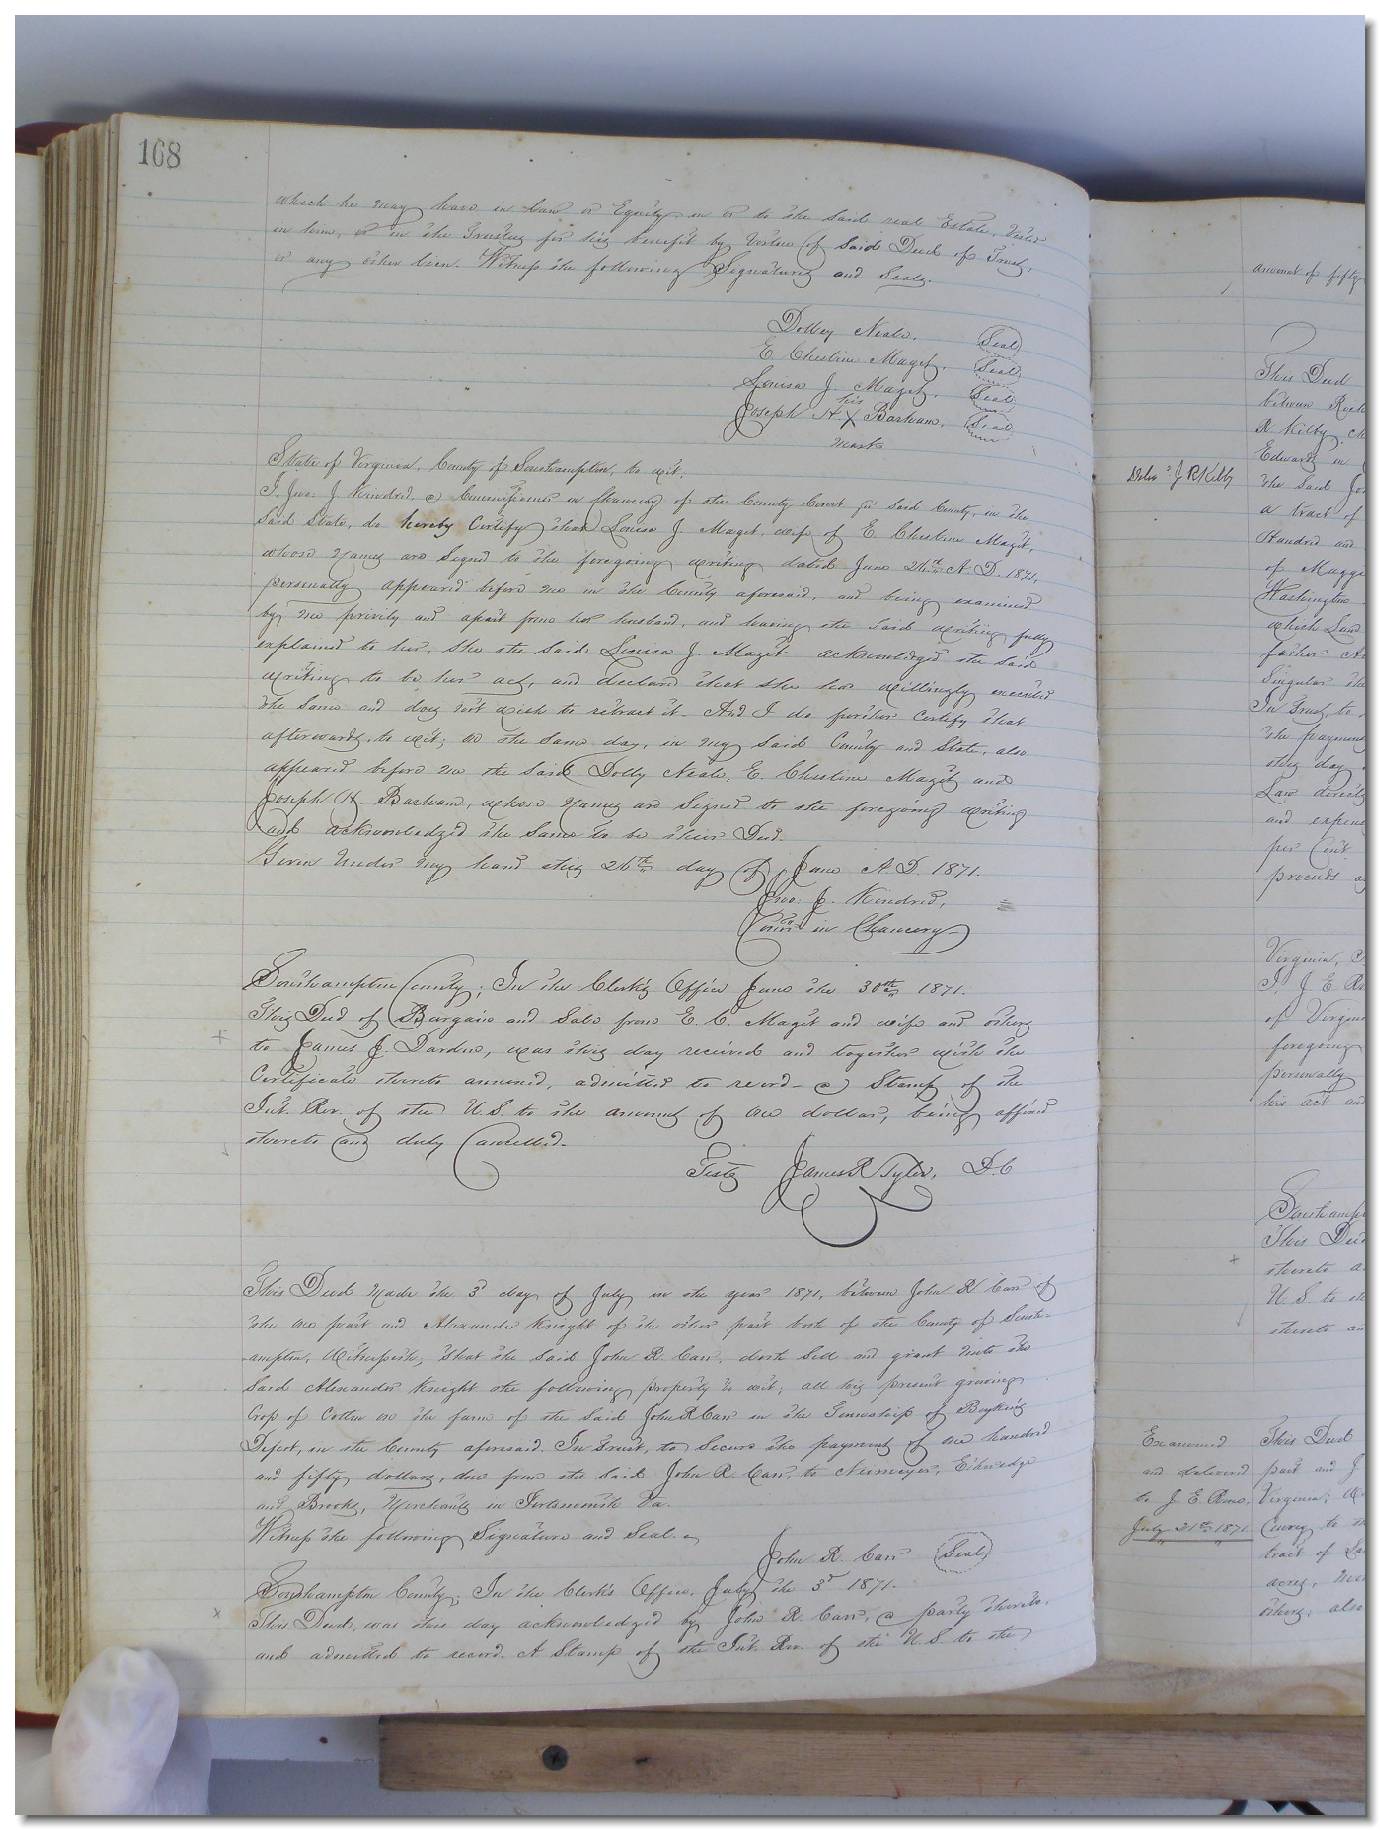 168
which he may have in Law or Equity in or to the said real Estate, Vested
in him, or in the Trustees for his benefit by Virtue of Said Deed of Trust,
or any other lien. Witness the following Signatures and Seals.
Dolley Neale, Seal
E. Chestine Maget, Seal
Louisa J. Maget, Seal
his
Joseph H X Barham, Seal
mark
State of Virginia, County of Southampton, to wit:
I, Jno. J. Kindred, a Commissioner in Chancery of the County Court for said County, in the
said State, do hereby Certify that Louisa J. Maget, wife of E. Chestine Maget,
whose names are signed to the foregoing writing dated June 26th A.D. 1871,
personally appeared before me in the County aforesaid, and being examined
by me privily and apart from her husband, and having the said writing fully
explained to her, she the said Louisa J. Maget acknowledged the said
writing to be her act, and declared that she had willingly executed
the same and does not wish to retract it. And I do further Certify that
afterwards, to wit; on the same day, in my said County and State, also
appeared before me the said Dolly Neale, E. Chestine Maget and
Joseph H Barham, whose names are signed to the foregoing writing
and acknowledged the same to be their Deed.
Given under my hand this 26th day of June A.D. 1871.
Jno. J. Kindred,
Comr in Chancery
Southampton County; In the Clerk's Office June the 30th 1871.
This Deed of Bargain and Sale from E. C. Maget and wife and others
to James J. Darden, was this day received and together with the
Certificate thereto annexed, admitted to record. a Stamp of the
Int. Rev. of the U.S. to the amount of one dollar, being affixed
thereto and duly Cancelled.
Teste James R Tyler, D.C
This Deed made the 3d day of July in the year 1871, between John R. Carr of
the one part and Alexander Knight of the other part both of the County of South-
-ampton, Witnesseth, that the said John R. Carr, doth sell and grant unto the
said Alexander Knight the following property to wit; all his present growing
Crop of Cotton on the farm of the said John R Carr in the Township of Boykins
Depot, in the County aforesaid. In Trust, to secure the payment of one hundred
and fifty dollars, due from the said John R. Carr, to Niemeyer, Etheredge
and Brooks, Merchants in Portsmouth Va.
Witness the following Signature and Seal.
John R. Carr Seal
Southampton County; In the Clerk's Office, July the 3d 1871.
This Deed, was this day acknowledged by John R. Carr, a party thereto,
and admitted to record. A Stamp of the Int. Rev. of the U.S. to the
amount of fifty
This Deed
between
R Kilby,
Edwards in
Deld J R Kilby
the said
a tract of
Hundred and
of
Washington
which Land
father
Singular the
In Trust, to
the payment
this day
Law directs
and expense
per Cent
proceeds
Virginia,
I, J. E.
of Virginia
foregoing
personally
his act and
This Deed
thereto
U. S. to the
thereto an
Examined
and delivered
to J. E.
July 21st 1871.
This Deed
part and J
Virginia,
Convey to
tract of
acres,
others, also